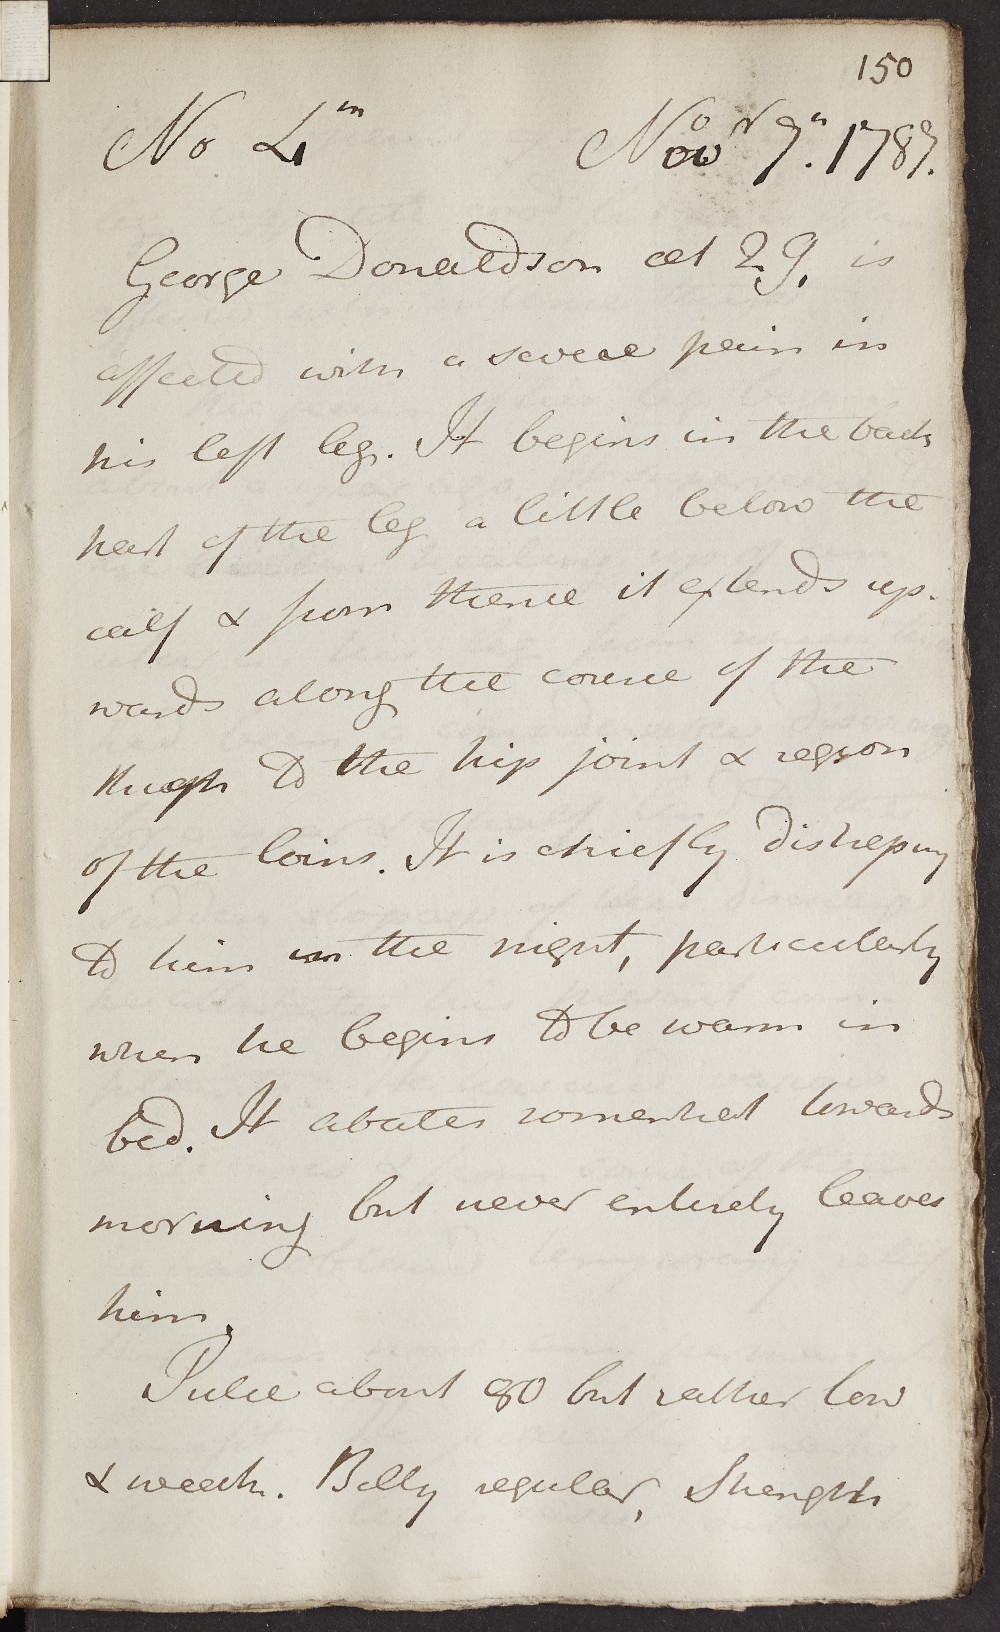 150
No 4th Novr 7th. 1787.
George Donaldson aet 29, is
affected with a severe pain in
his left leg. It begins in the back
part of the leg a little below the
calf & from thence it extends up-
wards along the course of the
thigh to the hip joint & region
of the loins. It is chiefly distressing
to him in the night, particularly
when he begins to be warm in
bed. It abates somewhat towards
morning but never entirely leaves
him.
Pulse about 80 but rather low
& weak. Belly regular, Strength